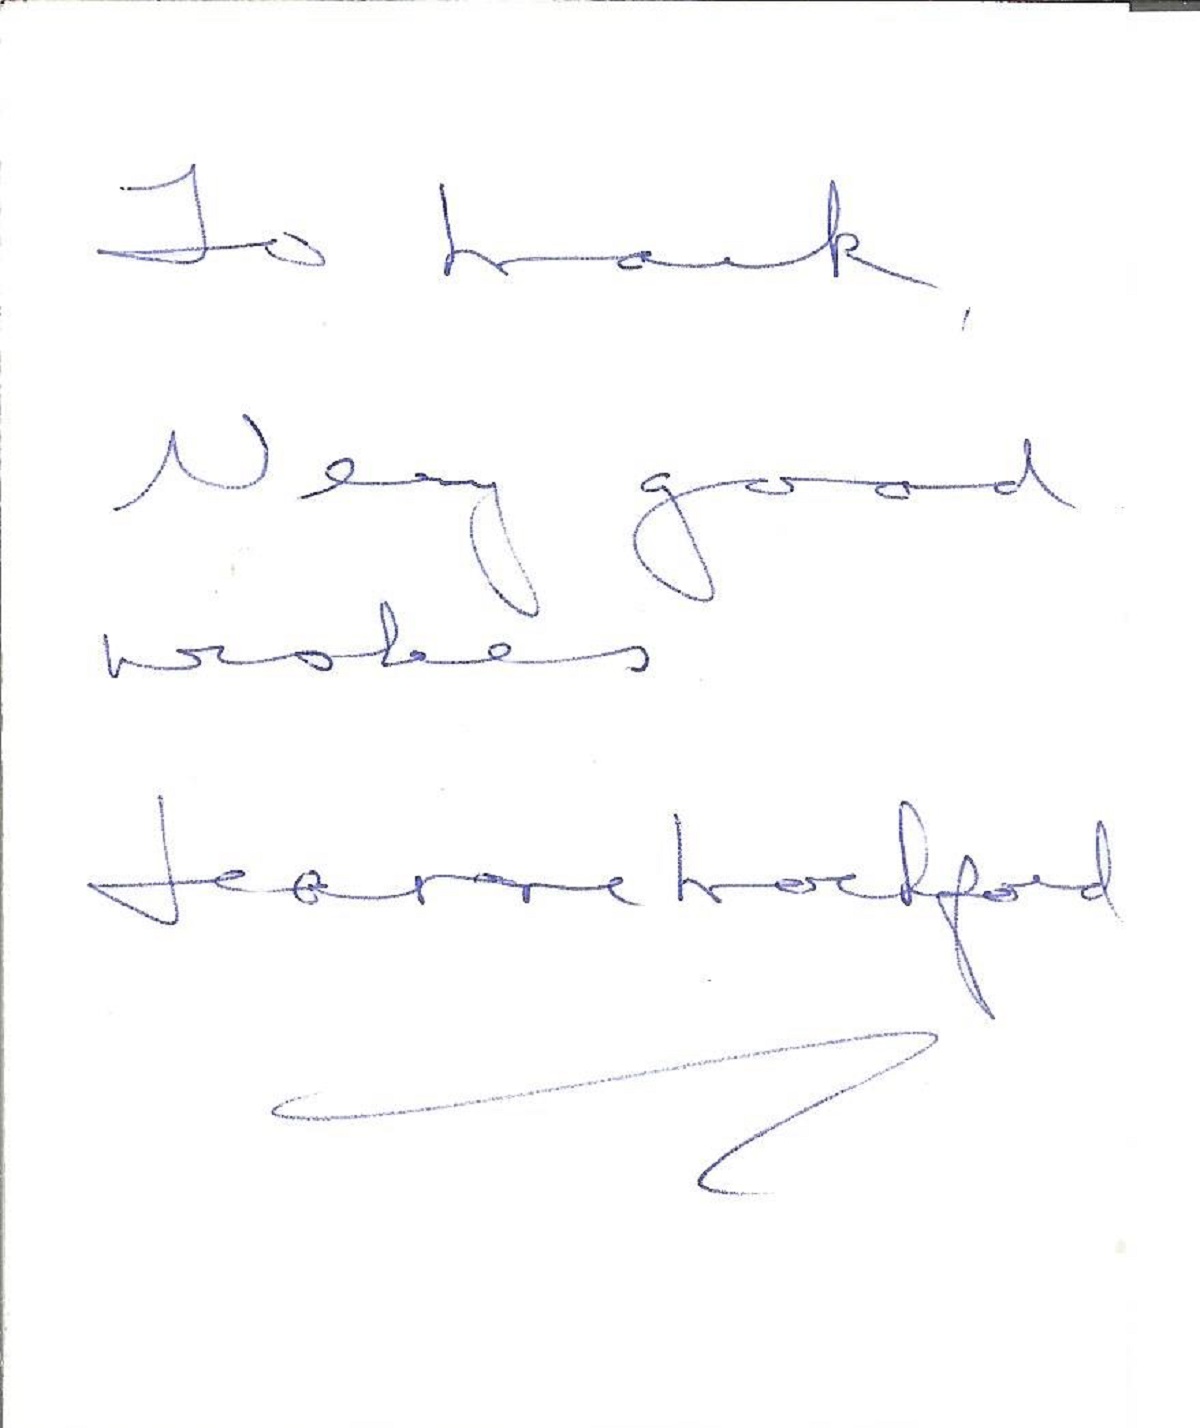 To Mark,
Very good
wishes
Jeanne Mockford